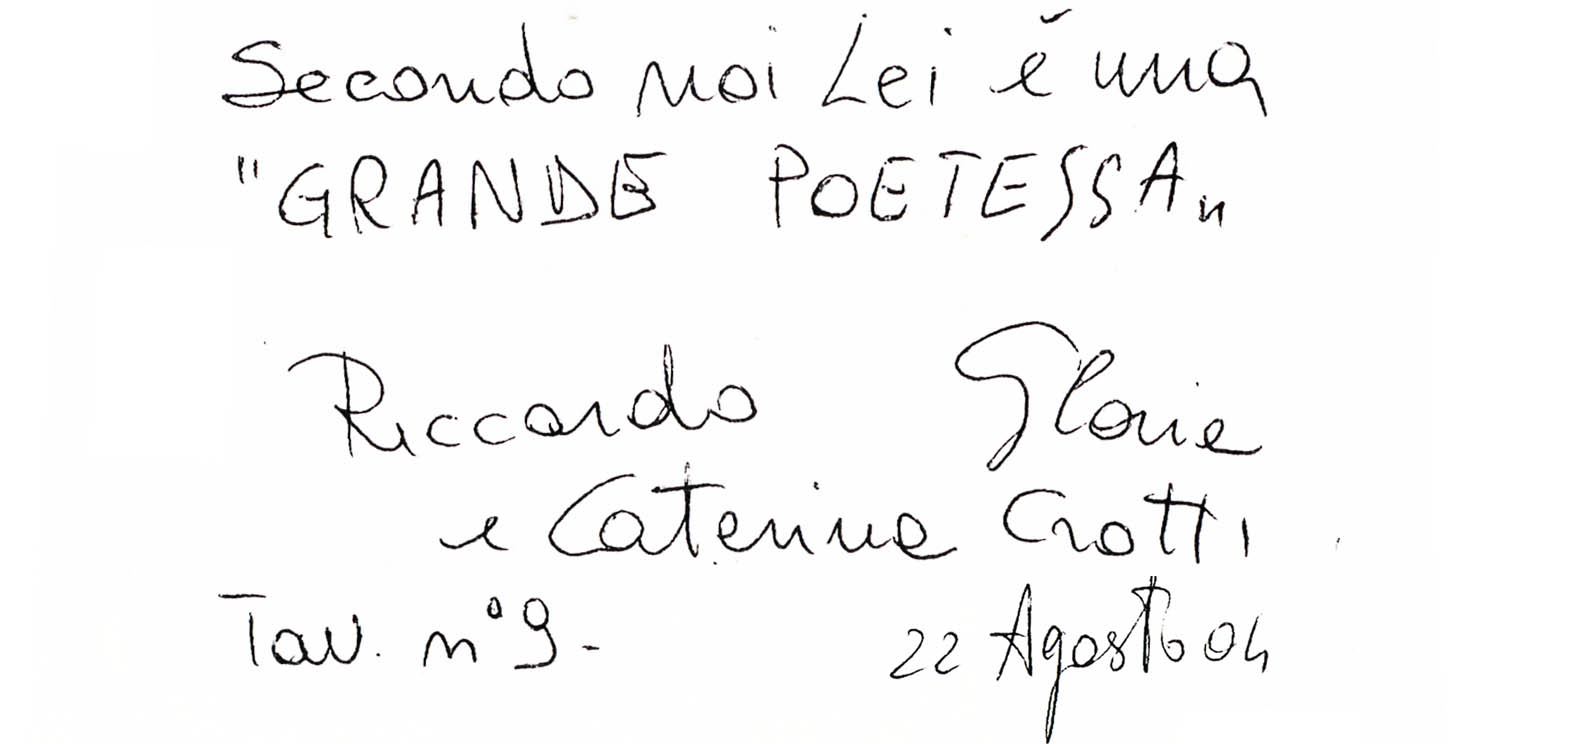 Secondo noi Lei è una
"GRANDE POETESSA"
Riccardo Gloria
e Caterina Crotti
Tav. n° 9-
22 Agosto 04